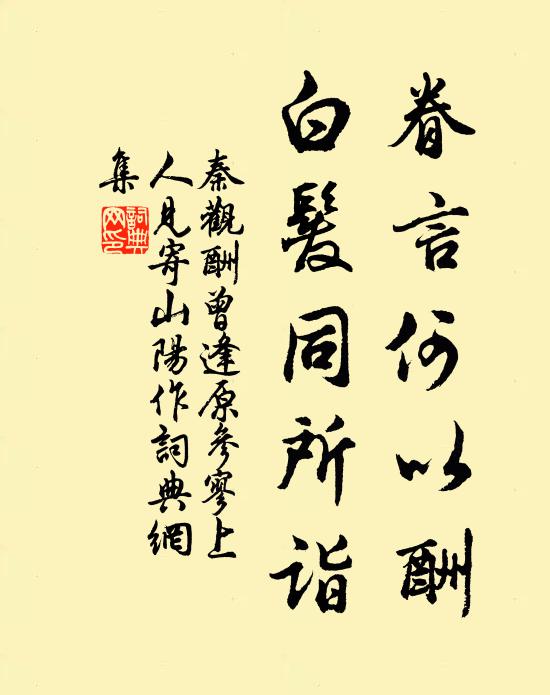 眷言何以酬
白髮同所詣
秦觀酬曾逢原參寥上
人見寄山陽作詞典網
集
詞典
网印